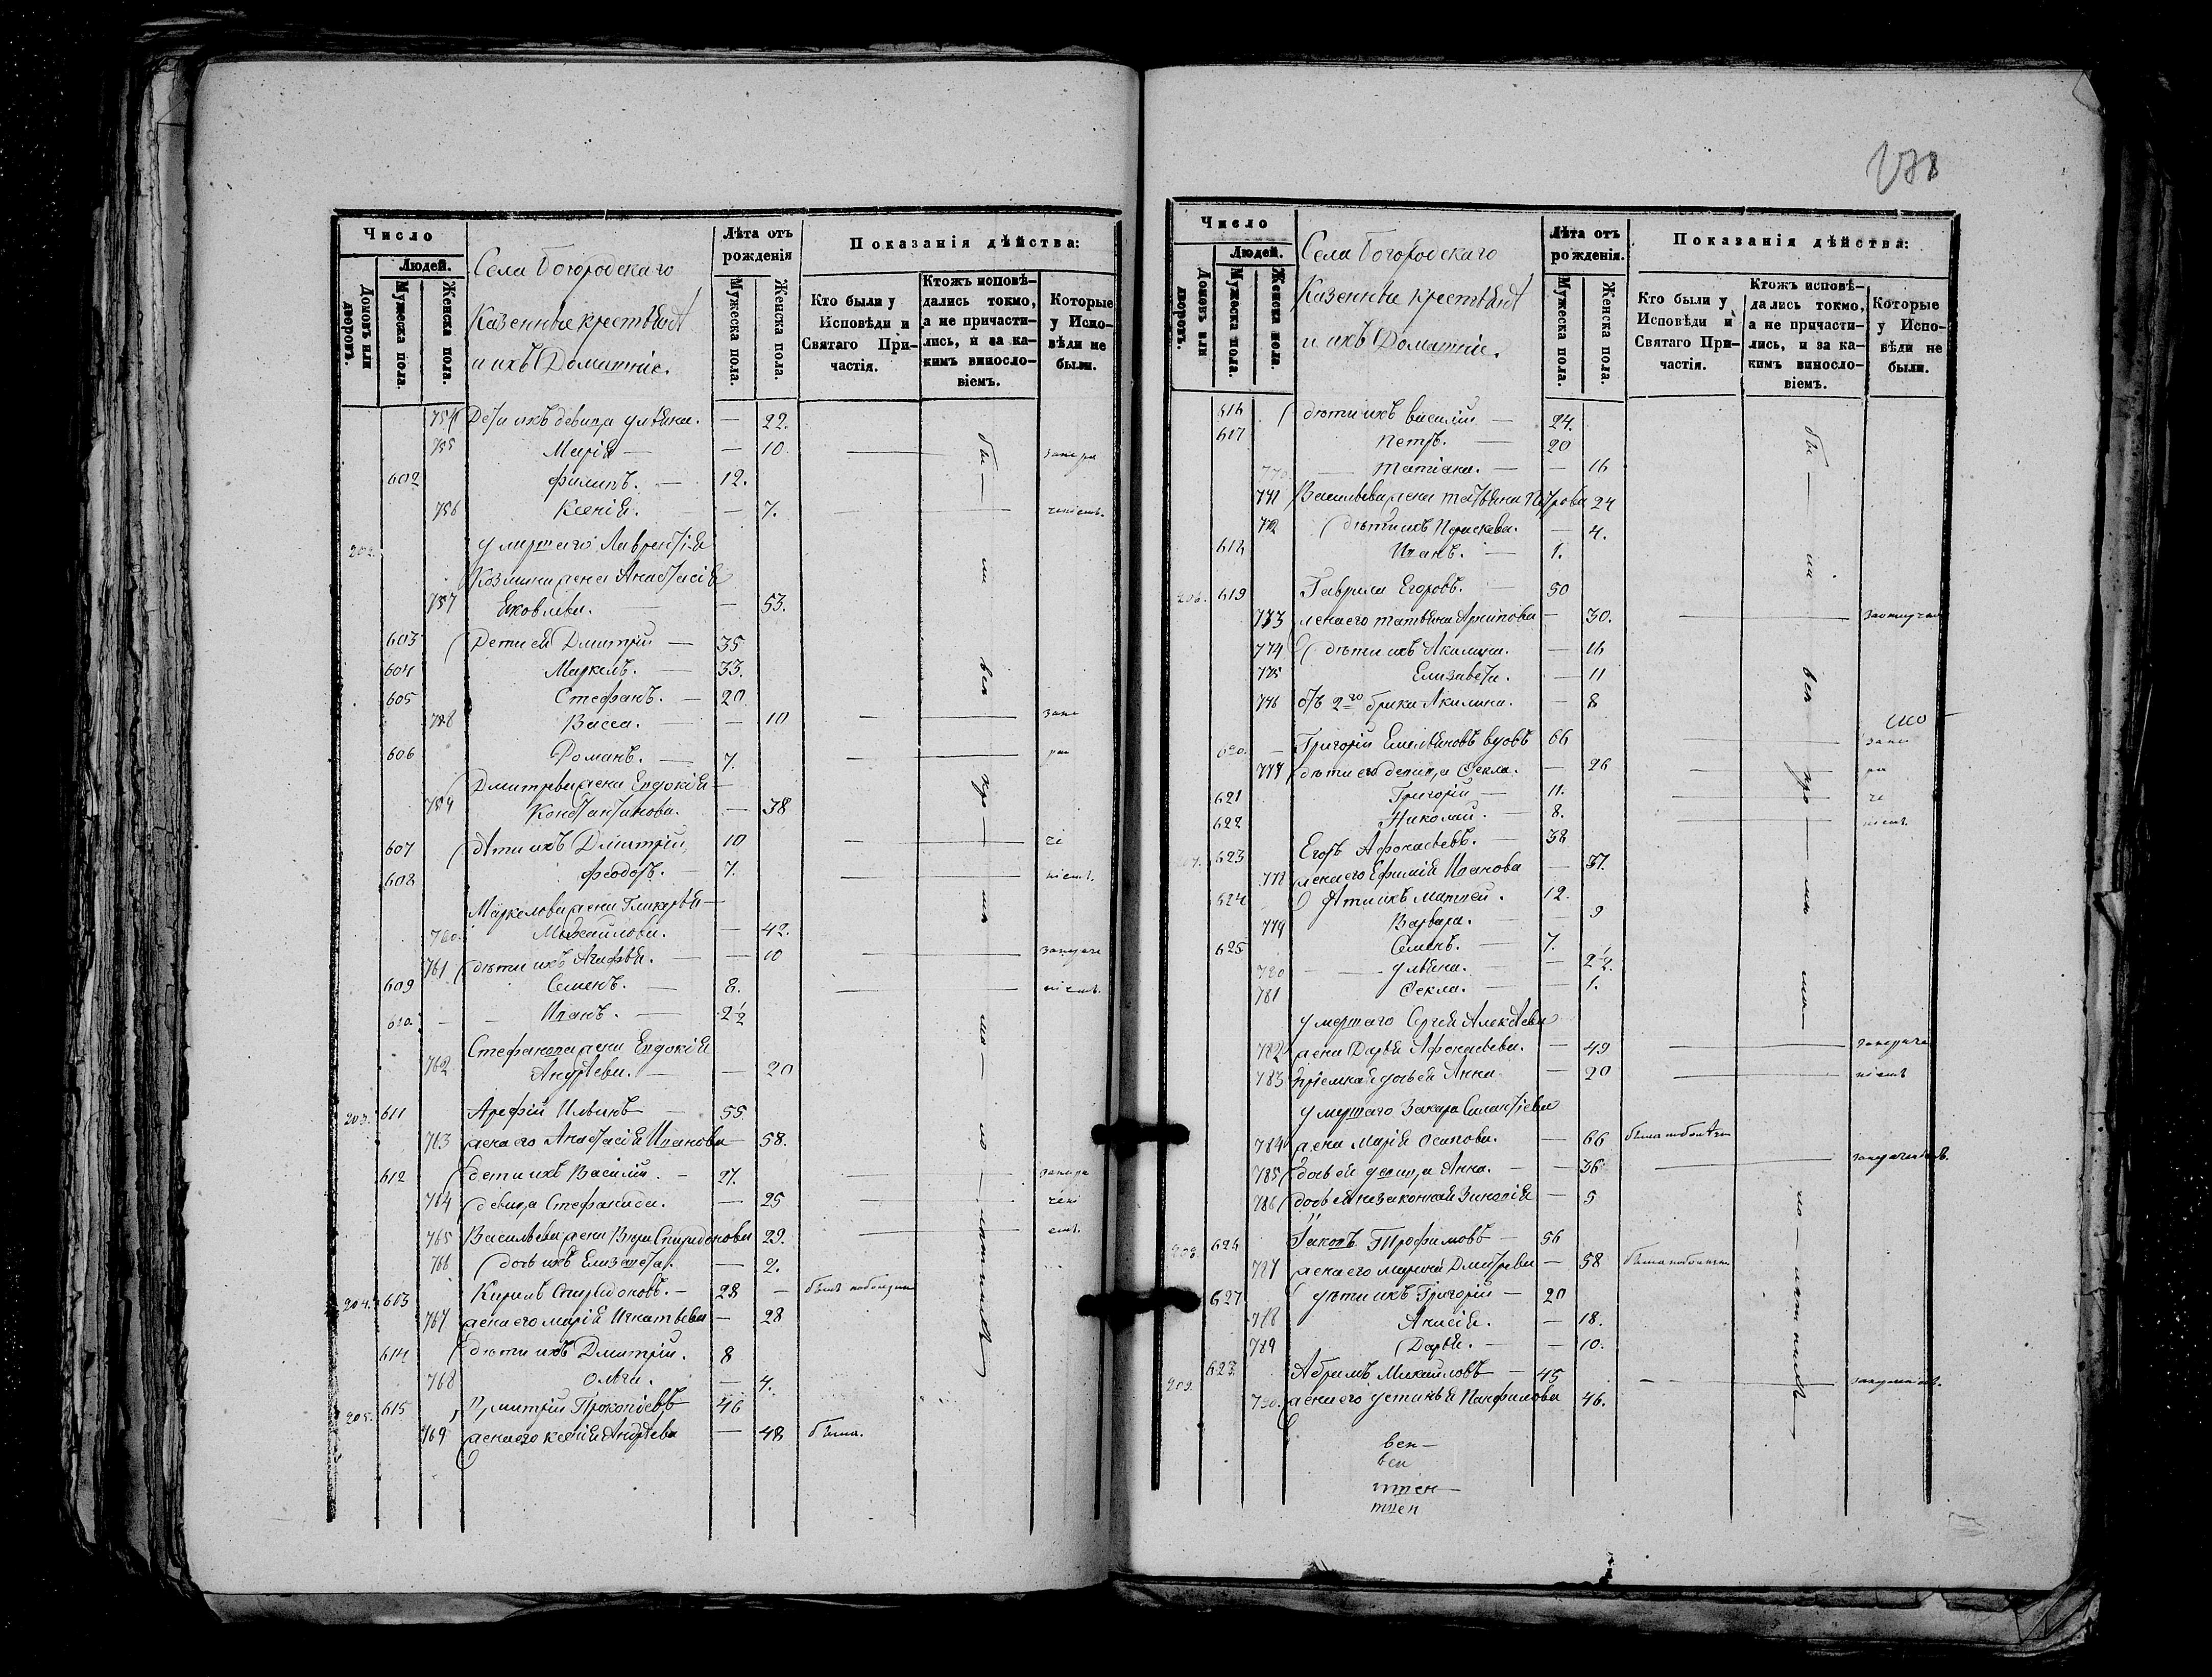 Число
Людей.
Домовъ или дворовъ.
Мужеска пола.
Женска пола.
Села Богородскаго
Казенные крестьяне
и ихъ Домашніе.
Лѣта отъ рожденія
Мужеска пола.
Женска пола.
Показанія дѣйства:
Кто были у Исповѣди и Святаго Причастія.
Ктожъ исповѣдались токмо, а не причастились, и за какимъ винословіемъ.
Которые у Исповѣди не были.
754 Дети ихъ девица Ульяна. — 22.
755 Марія — — 10.
602 Филипъ. — 12.
756 Ксенія. — 7.
202. умершаго Лаврентія
Козмина жена Анастасія
757 Яковлева. — 53.
603 Дети ея Дмитрій — 35
604 Маркелъ. — 33.
605 Стефанъ. — 20
758 Васса. — — 10
606 Романъ. — 7.
Дмитріева жена Евдокія
759 Константинова. — 38
607 дѣти ихъ Дмитрій, 10
608 Феодоръ. — 7.
Маркелова жена Гликерья
760. Михайлова. — 42.
761 дѣти ихъ Агафья. — — 10
609 Семенъ. — 8.
610. Иванъ. — 2½
Стефанова жена Евдокія
762 Андрѣева. — — 20
203. 611 Арефій Ильинъ — 55
763 жена его Анастасія Иванова — 58.
612 дети ихъ Василій. — 27.
764 девица Стефанида. — 25
765 Васильева жена Вера Спиридонова 29.
766 дочь ихъ Елизавета. — 2.
204. 613 Кирилъ Спиридоновъ. — 28 —
767 жена его Марія Игнатьева — 28
614 дѣти ихъ Дмитрій. 8
768 Ольга. — 4.
205. 615 Дмитрій Прокопіевъ 46
769 жена его Ксенія Андрѣева — 48 была.
Число
Людей.
Домовъ или дворовъ.
Мужеска пола.
Женска пола.
Села Богородскаго
Казенные крестьяне
и ихъ Домашніе.
Лѣта отъ рожденія.
Мужеска пола.
Женска пола.
Показанія дѣйства:
Кто были у Исповѣди и Святаго Причастія.
Ктожъ исповѣдались токмо, а не причастились, и за какимъ винословіемъ.
Которые у Исповѣди не были.
616 дѣти ихъ Василій — 24.
617 Петръ. — 20
770 Татіана. — — 16
771 Васильева жена Татьяна Петрова 24
772 дѣти ихъ Параскева. — 4.
618 Иванъ. — 1.
206. 619 Гаврила Егоровъ. — 50
773 жена его Татьяна Архипова — 30.
774 дѣти ихъ Акилина. — 16
775 Елизавета. — 11
776 отъ 2го брака Акилина. — 8
620. Григорій Емельяновъ вдовъ 66
777 дѣти его девица Фекла. — 26
621 Григорій — 11.
622 Николай. — 8.
623 Егоръ Афонасьевъ. — 38
778 жена его Ефимія Иванова — 37.
624 дѣти ихъ Матвей. 12.
779 Варвара. — — 9
625 Семенъ. — 7.
780 Ульяна. — — 2½.
781 Фекла. — — 1.
умершаго Сергея Алексѣева
782 жена Дарья Афонасьева. — 49
783 приемная дочь ея Анна. — 20
умершаго Захара Силантіева
784 жена Марія Осипова. — 66
785 дочь ея девица Анна. — — 36
786 дочь ея незаконная Зиновія — 5
208 626 Іаковъ Трофимовъ — 56
787 жена его Марина Дмитріева — 58
627 дѣти ихъ Григорій — 20
788 Анисія. — — 18.
789 Дарья. — — 10.
209. 628. Абрамъ Михайловъ — 45
790. жена его Устинья Панфилова 46.
вен—
вен